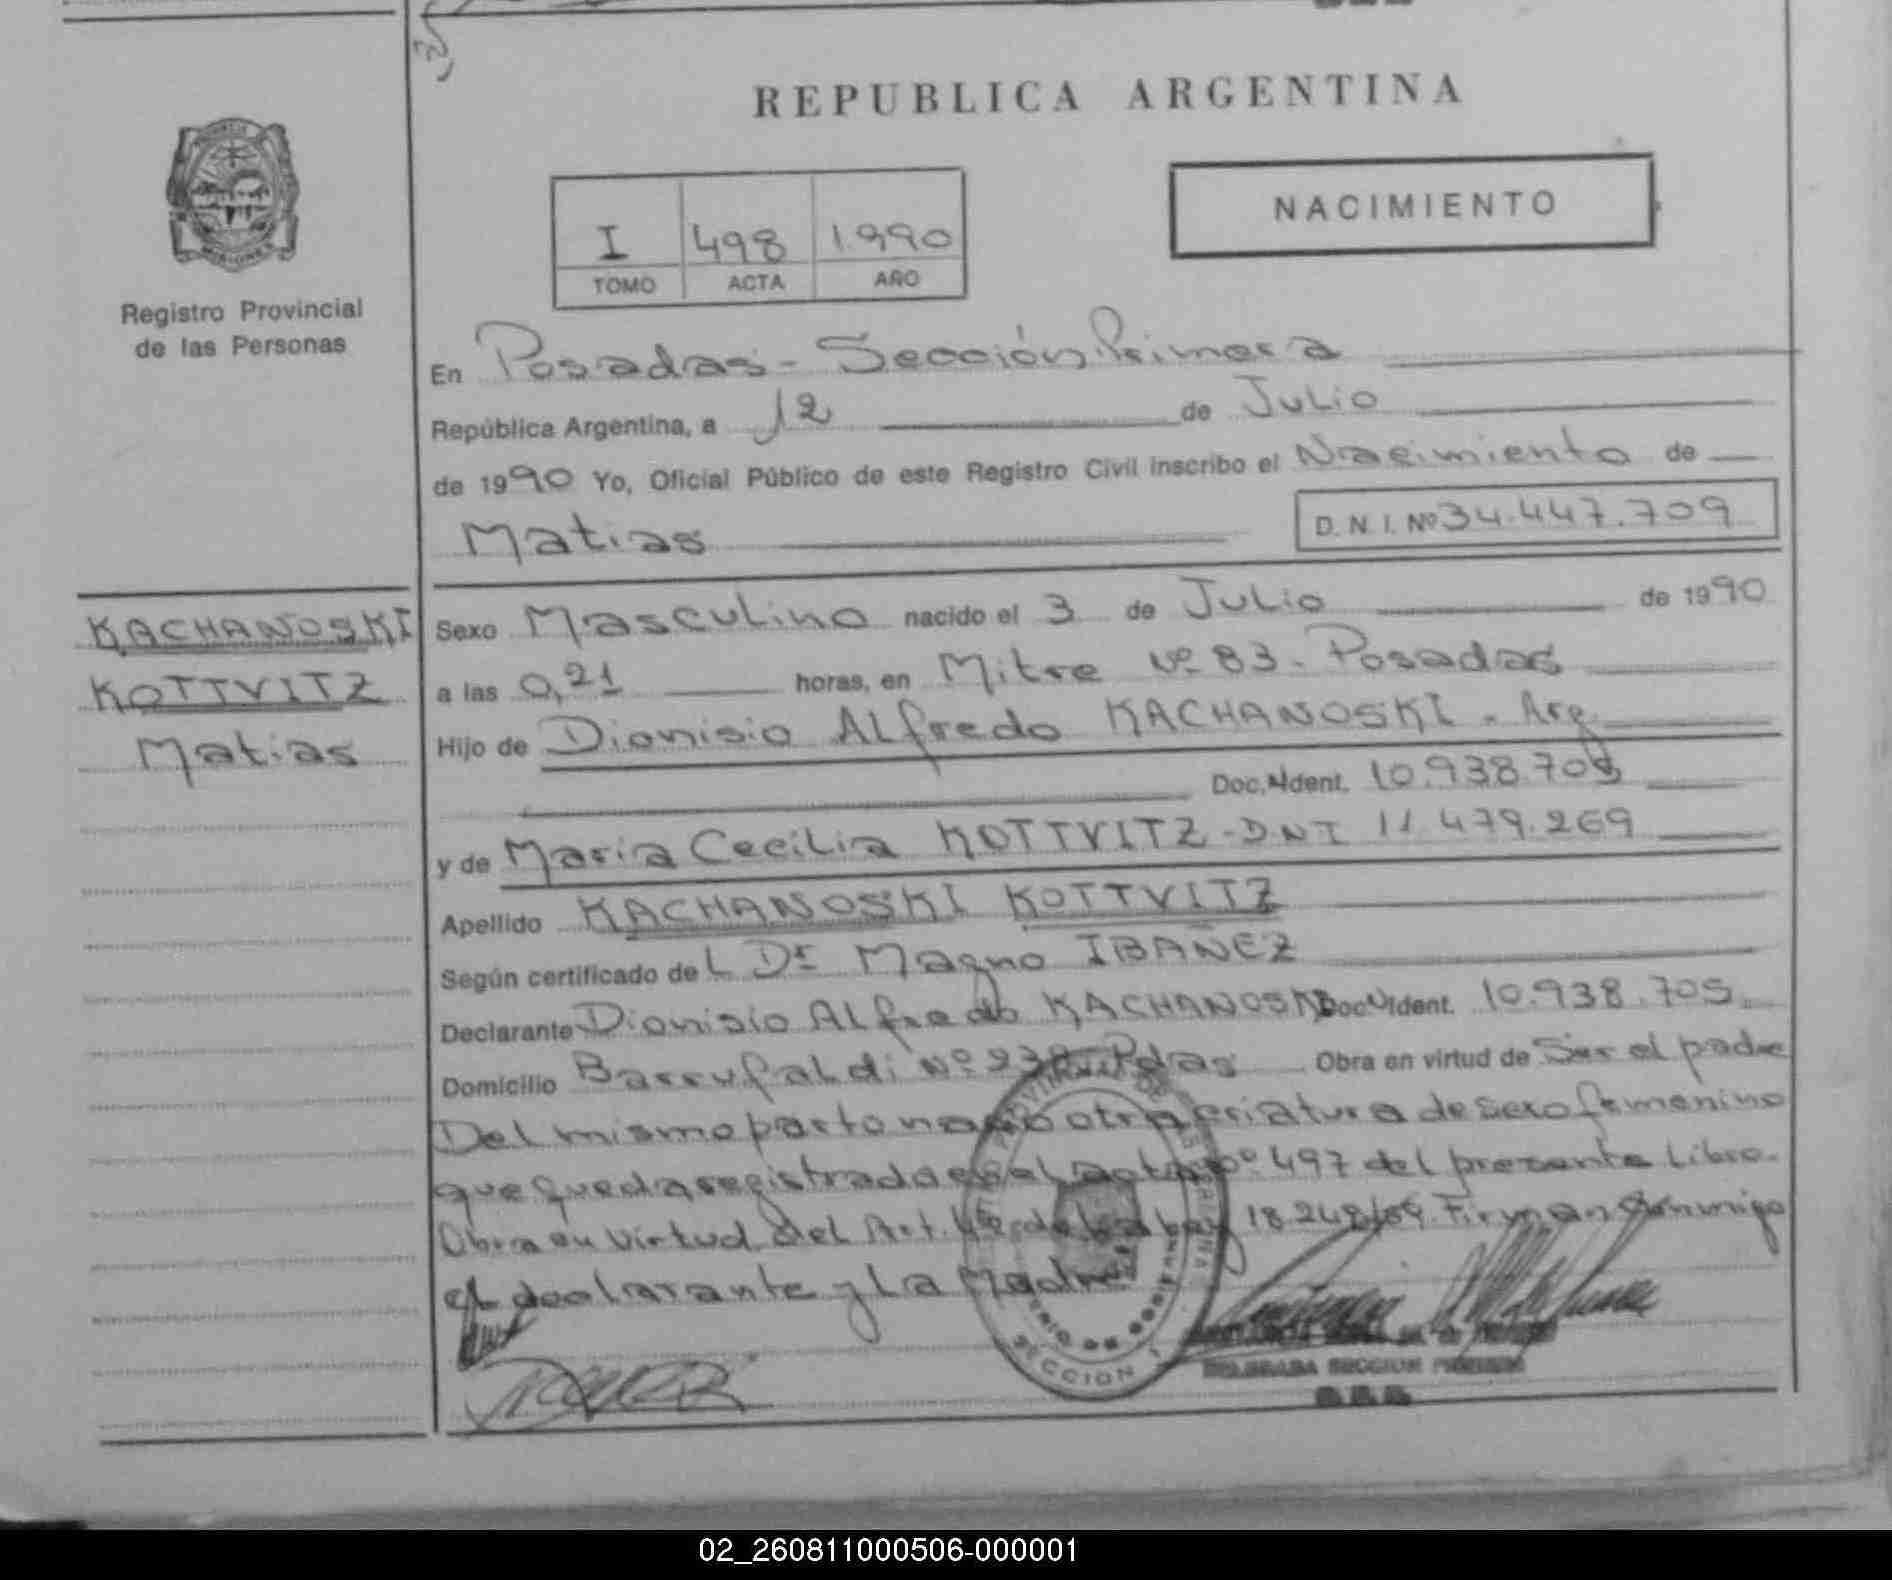 REPUBLICA ARGENTINA
NACIMIENTO
I 498 1.990
TOMO ACTA AÑO
Registro Provincial
de las Personas
En Posadas - Sección Primera
República Argentina, a 12 de Julio
de 1990 Yo, Oficial Público de este Registro Civil inscribo el Nacimiento de
Matias D.N.I. Nº 34.447.709
KACHANOSKI
KOTTVITZ
Matias
Sexo Masculino nacido el 3 de Julio de 1990
a las 0,21 horas, en Mitre Nº 83. Posadas
Hijo de Dionisio Alfredo KACHANOSKI. Arg.
Doc. Ident. 10.938.705
y de Maria Cecilia KOTTVITZ - DNI 11.479.269
Apellido KACHANOSKI KOTTVITZ
Según certificado del Dr Magno IBAÑEZ
Declarante Dionisio Alfredo KACHANOSKI Doc. Ident. 10.938.705.
Domicilio Barrufaldi Nº Pdas Obra en virtud de Ser el padre
Del mismo parto nacio otra criatura de sexo femenino
que queda registrado en el acta nº 497 del presente Libro.
Obra en virtud del Art. de la Ley 18.248/69. Firman conmigo
el declarante y la Madre
SECCION 1
DELEGADA SECCION PRIMERA
02_260811000506-000001